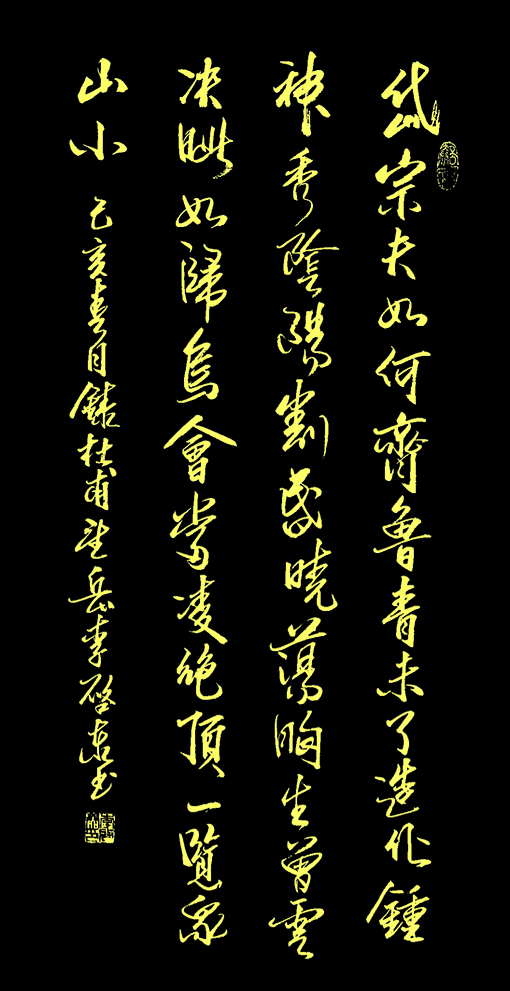 岱宗夫如何齊魯青未了造化鍾
神秀陰陽割昏曉蕩胸生曾雲
决眦如歸鳥會當凌絕頂一覽衆
山小 己亥春月錄杜甫望岳李啓東書